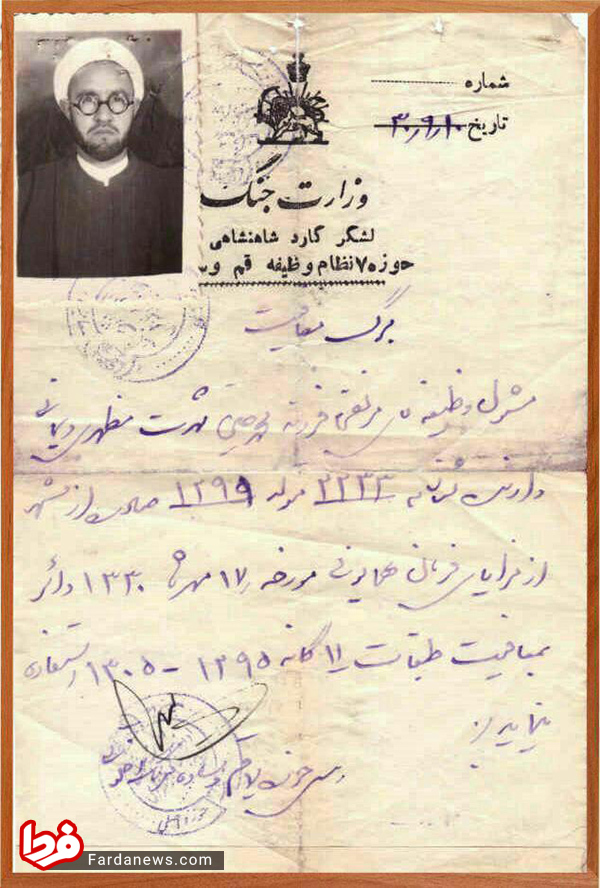 شماره
تاریخ ۳۰/۹/۱۰
وزارت جنگ
لشگر گارد شاهنشاهی
حوزه ۷ نظام وظیفه قم وس
برگ معافیت
مشمول وظیفه آقای مرتضی فرزند محمدحسین شهرت مطهری
دارنده شناسنامه ۳۲۳۳ متولد ۱۲۹۹ صادره از مشهد
از مزایای فرمان همایونی مورخه ۱۷ مهرماه ۱۳۳۰ دائر
بمعافیت طبقات ۱۱ گانه ۱۲۹۵ - ۱۳۰۵ استفاده
مینماید
رئیس حوزه
فردا
Fardanews.com